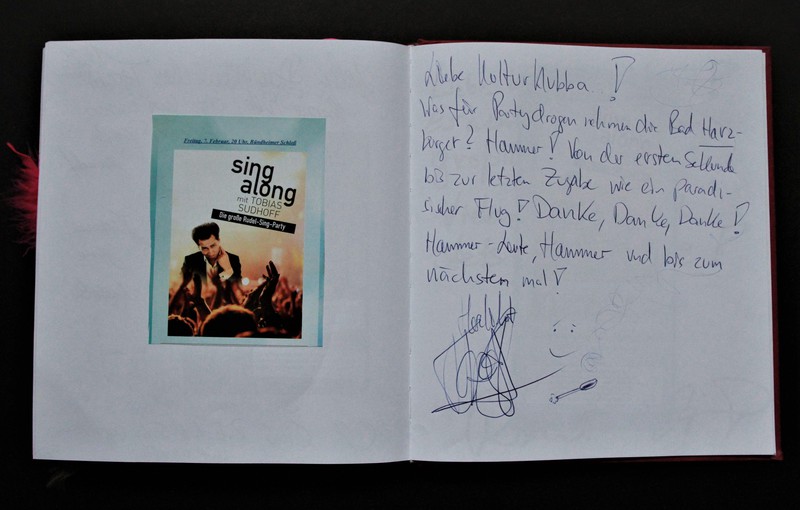 Freitag, 7. Februar, 20 Uhr, Bündheimer Schloß
sing
along
mit TOBIAS
SUDHOFF
Die große Rudel-Sing-Party
Liebe Kulturklubba !
Was für Partydrogen nehmen die Bad Harz-
burger? Hammer! Von der ersten Sekunde
bis zur letzten Zugabe wie ein paradi-
sischer Flug! Danke, Danke, Danke!
Hammer-Leute, Hammer und bis zum
nächsten mal!